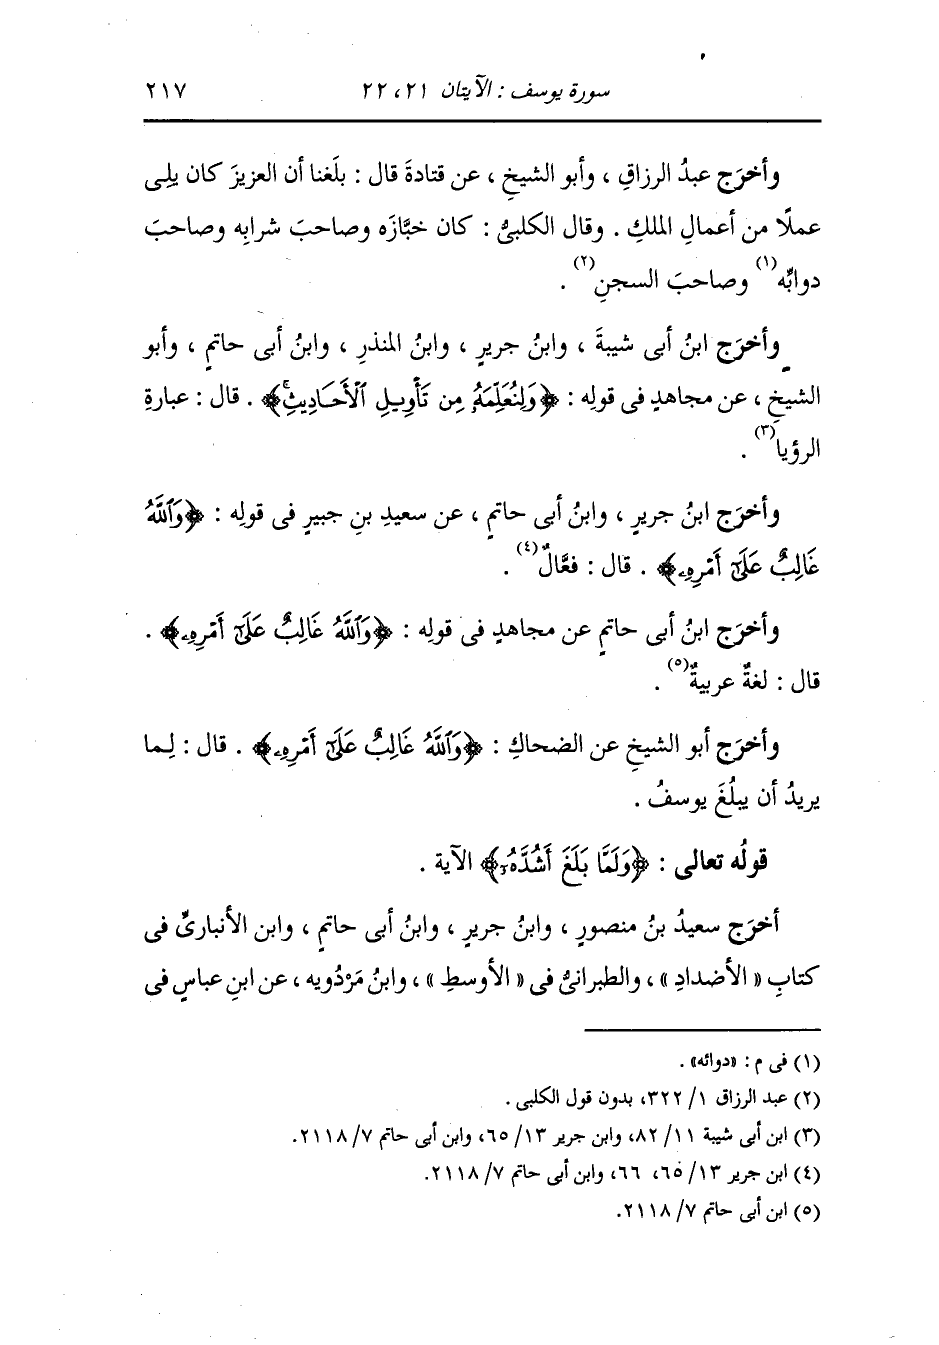 سورة يوسف : الآيتان ٢١ ، ٢٢ ٢١٧
وأخرَج عبدُ الرزاقِ ، وأبو الشيخِ ، عن قتادةَ قال : بلَغنا أن العزيزَ كان يلِى
عملًا من أعمالِ الملكِ . وقال الكلبىُّ : كان خبَّازَه وصاحبَ شرابِه وصاحبَ
دوابِّه(١) وصاحبَ السجنِ(٢) .
وأخرَج ابنُ أبى شيبةَ ، وابنُ جريرٍ ، وابنُ المنذرِ ، وابنُ أبى حاتمٍ ، وأبو
الشيخِ ، عن مجاهدٍ فى قولِه : ﴿وَلِنُعَلِّمَهُۥ مِن تَأْوِيلِ ٱلْأَحَادِيثِۚ﴾ . قال : عبارةِ
الرؤيا(٣) .
وأخرَج ابنُ جريرٍ ، وابنُ أبى حاتمٍ ، عن سعيدِ بنِ جبيرٍ فى قولِه : ﴿وَٱللَّهُ
غَالِبٌ عَلَىٰٓ أَمْرِهِۦ﴾ . قال : فعَّالٌ(٤) .
وأخرَج ابنُ أبى حاتمٍ عن مجاهدٍ فى قولِه : ﴿وَٱللَّهُ غَالِبٌ عَلَىٰٓ أَمْرِهِۦ﴾ .
قال : لغةٌ عربيةٌ(٥) .
وأخرَج أبو الشيخِ عن الضحاكِ : ﴿وَٱللَّهُ غَالِبٌ عَلَىٰٓ أَمْرِهِۦ﴾ . قال : لِما
يريدُ أن يبلُغَ يوسفُ .
قولُه تعالى : ﴿وَلَمَّا بَلَغَ أَشُدَّهُۥٓ﴾ الآية .
أخرَج سعيدُ بنُ منصورٍ ، وابنُ جريرٍ ، وابنُ أبى حاتمٍ ، وابن الأنبارىِّ فى
كتابِ « الأضدادِ » ، والطبرانىُّ فى « الأوسطِ » ، وابنُ مَرْدُويه ، عن ابنِ عباسٍ فى
(١) فى م : «دوائه» .
(٢) عبد الرزاق ١/ ٣٢٢، بدون قول الكلبى .
(٣) ابن أبى شيبة ١١/ ٨٢، وابن جرير ١٣/ ٦٥، وابن أبى حاتم ٧/ ٢١١٨.
(٤) ابن جرير ١٣/ ٦٥، ٦٦، وابن أبى حاتم ٧/ ٢١١٨.
(٥) ابن أبى حاتم ٧/ ٢١١٨.